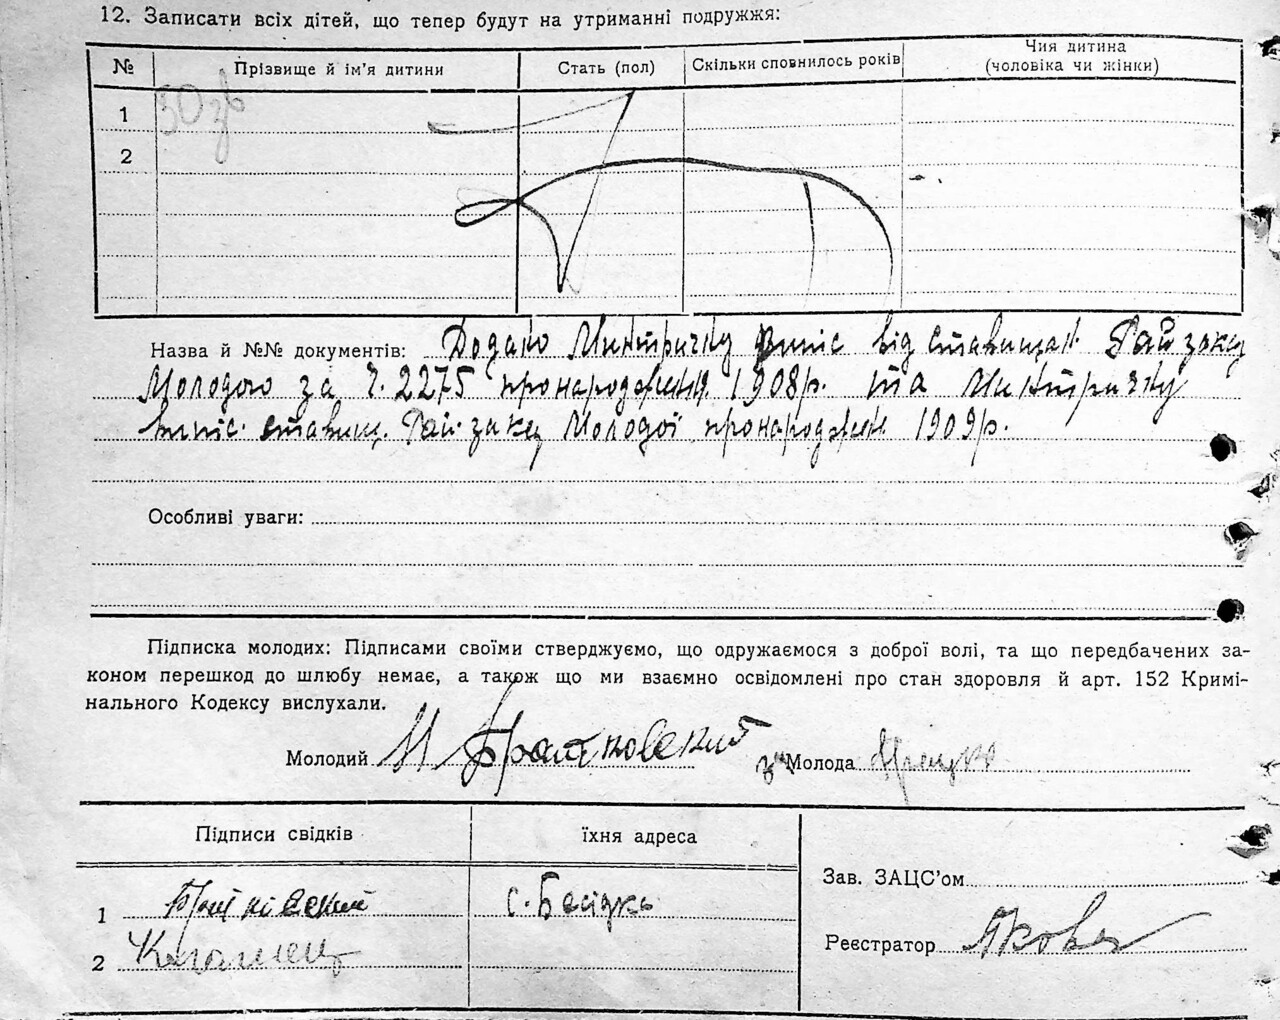 12. Записати всіх дітей, що тепер будут на утриманні подружжя:
№ Прізвище й ім'я дитини Стать (пол) Скільки сповнилось років Чия дитина (чоловіка чи жінки)
1
2
Назва й №№ документів: Додано Минтричку випис від ставищан. Рай загсу
Молодого за ч. 2275 про народження 1908р. та Минтричку
випис. ставищ. Рай. загсу Молодої про народжен 1909р.
Особливі уваги:
Підписка молодих: Підписами своїми стверджуємо, що одружаємося з доброї волі, та що передбачених за-
коном перешкод до шлюбу немає, а також що ми взаємно освідомлені про стан здоровля й арт. 152 Кримі-
нального Кодексу вислухали.
Молодий Братковский Молода
Підписи свідків їхня адреса
Зав. ЗАЦС'ом
1 с. Бесідка
Реєстратор
2